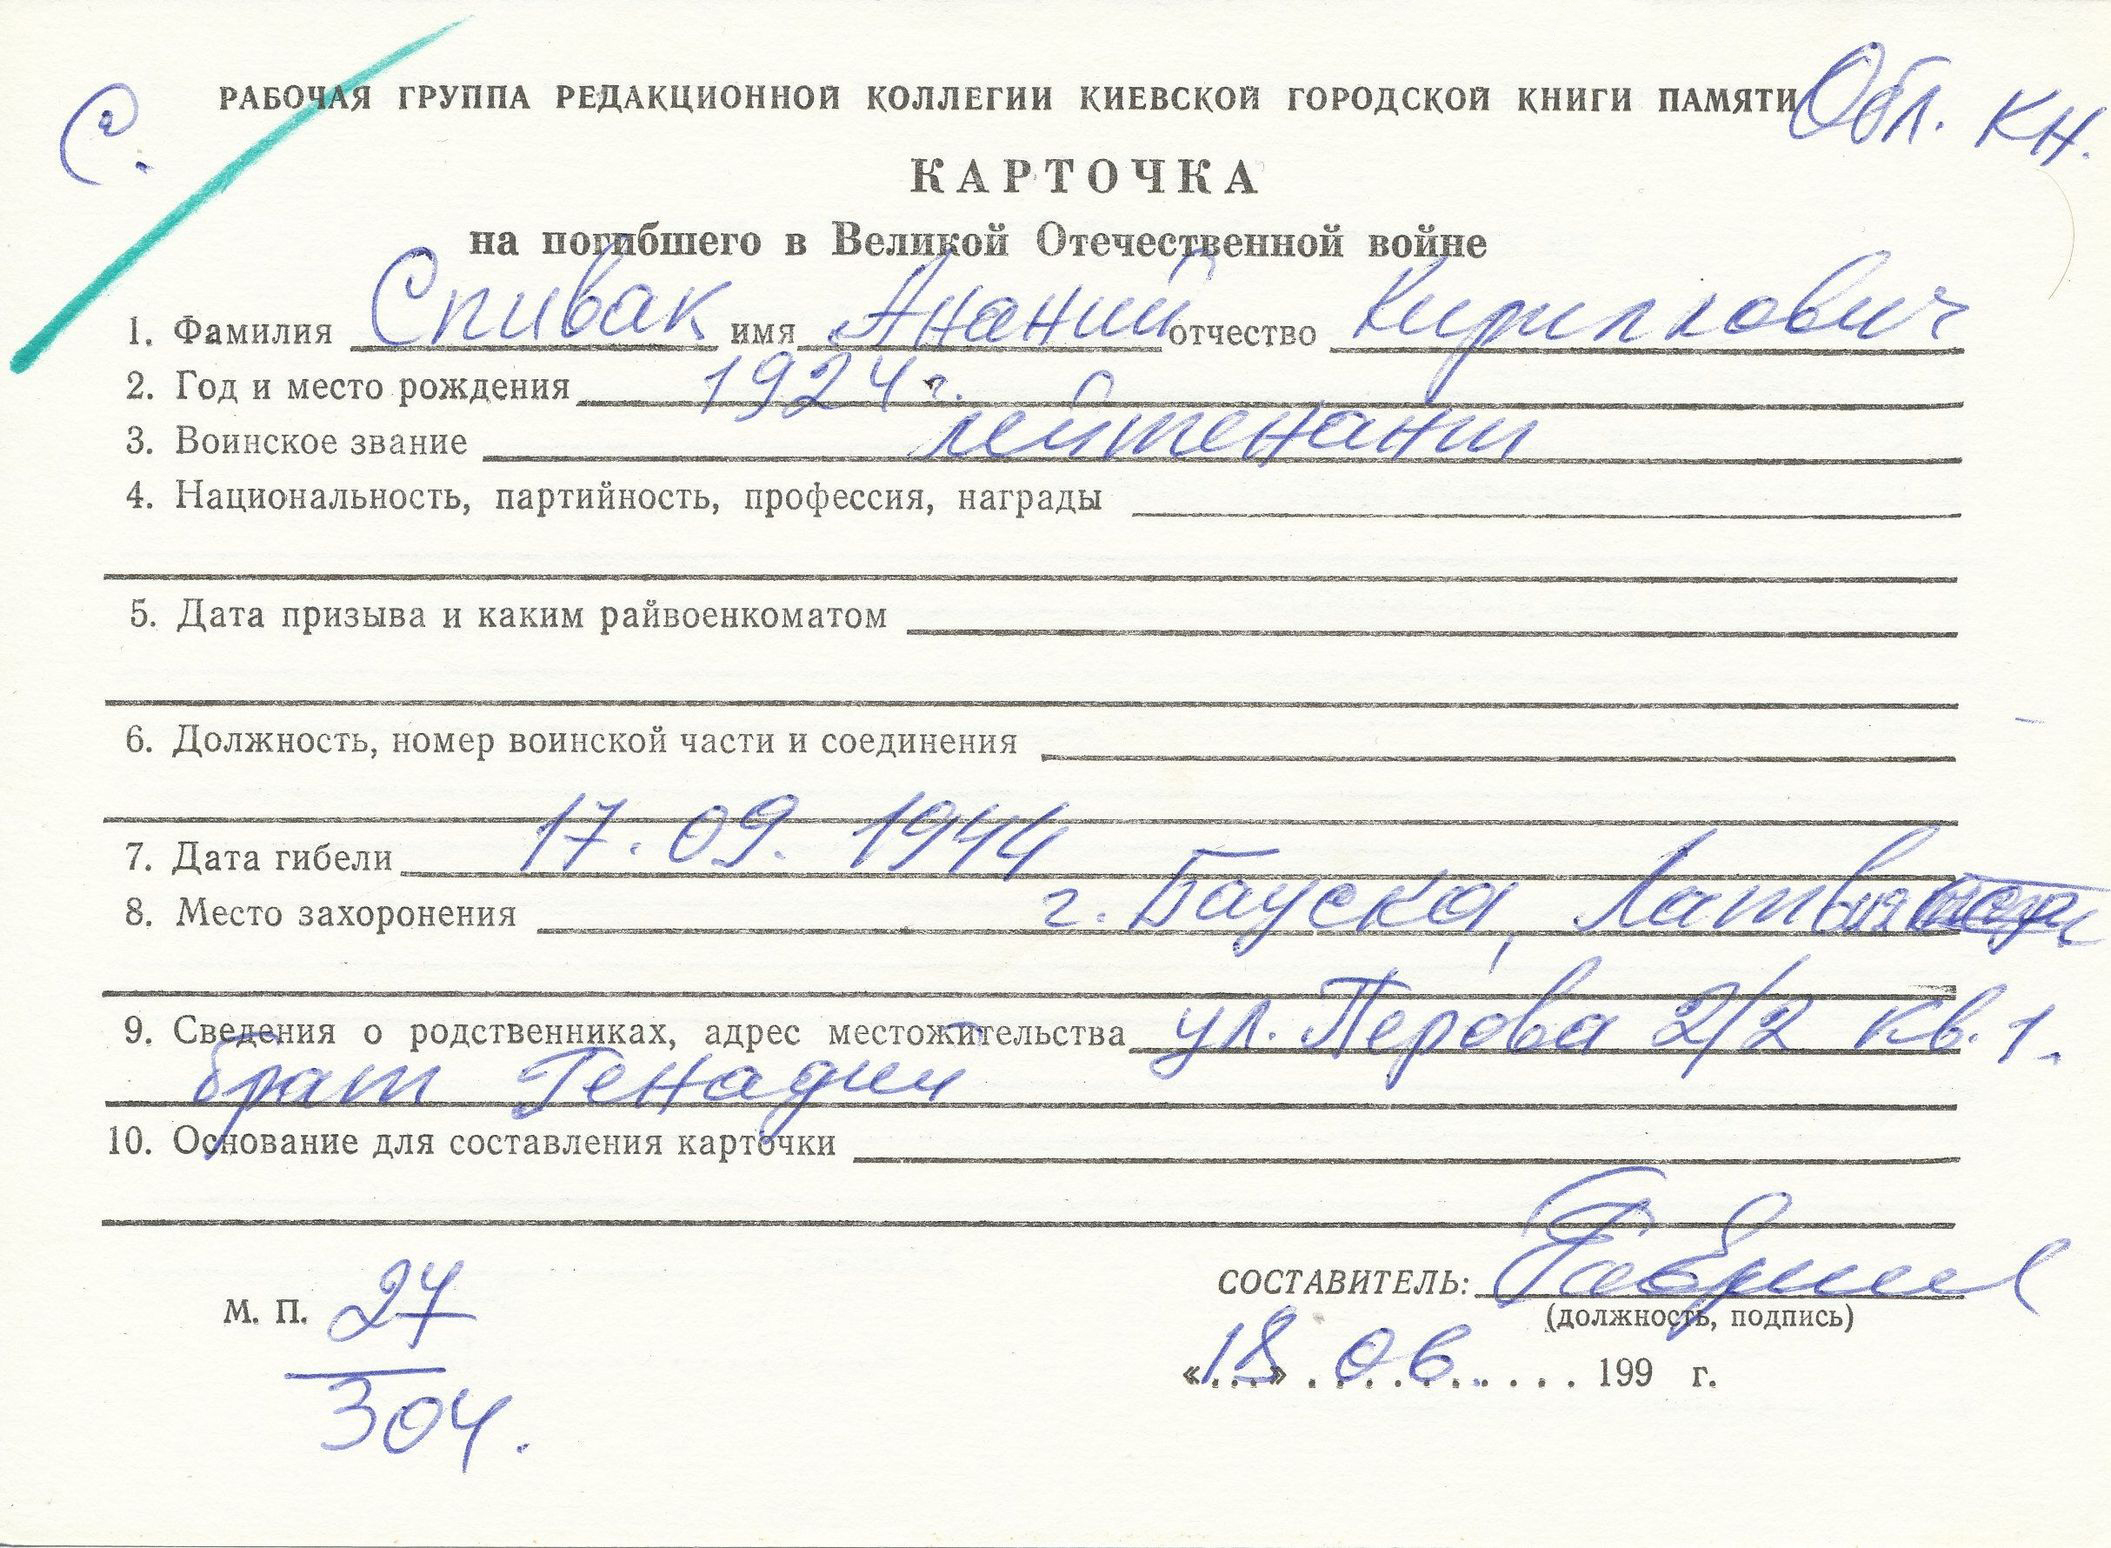 С.
Обл. кн.
РАБОЧАЯ ГРУППА РЕДАКЦИОННОЙ КОЛЛЕГИИ КИЕВСКОЙ ГОРОДСКОЙ КНИГИ ПАМЯТИ
КАРТОЧКА
на погибшего в Великой Отечественной войне
1. Фамилия Спивак имя Ананий отчество Кириллович
2. Год и место рождения 1924 г.
3. Воинское звание лейтенант
4. Национальность, партийность, профессия, награды
5. Дата призыва и каким райвоенкоматом
6. Должность, номер воинской части и соединения
7. Дата гибели 17. 09. 1944
8. Место захоронения г. Бауска, Латвия
9. Сведения о родственниках, адрес местожительства ул. Перова 2/2 кв. 1.
брат Генадий
10. Основание для составления карточки
СОСТАВИТЕЛЬ:
(должность, подпись)
М. П. 24
304.
«18» 06. 199 г.